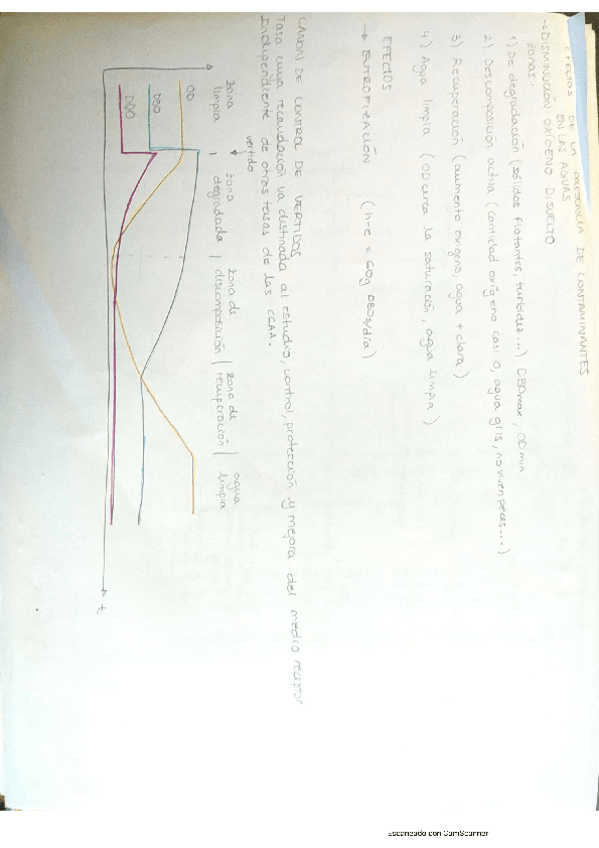 EFECTOS DE LA PRESENCIA DE CONTAMINANTES
EN LAS AGUAS
→ DISMINUCIÓN OXÍGENO DISUELTO
zonas:
1) De degradación (sólidos flotantes, turbidez...) DBO max, OD min
2) Descomposición activa (cantidad oxígeno casi 0, agua gris, no viven peces...)
3) Recuperación (aumento oxígeno, agua + clara)
4) Agua limpia (OD cerca la saturación, agua limpia)
EFECTOS
→ EUTROFIZACIÓN (h-e = 60g DBO5/día)
CANON DE CONTROL DE VERTIDOS
Tasa cuya recaudación va destinada al estudio, control, protección y mejora del medio receptor
Independiente de otras tasas de las CCAA.
vertido
zona limpia | zona degradada | zona de descomposición | zona de recuperación | agua limpia
OD
DBO
DQO
t
Escaneado con CamScanner